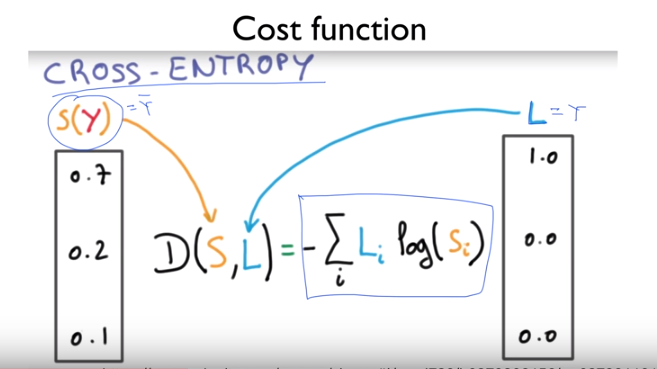 Cost function
CROSS-ENTROPY
S(Y) = Ȳ
L = Y
0.7
0.2
0.1
D(S,L) = -∑ᵢ Lᵢ log(Sᵢ)
1.0
0.0
0.0